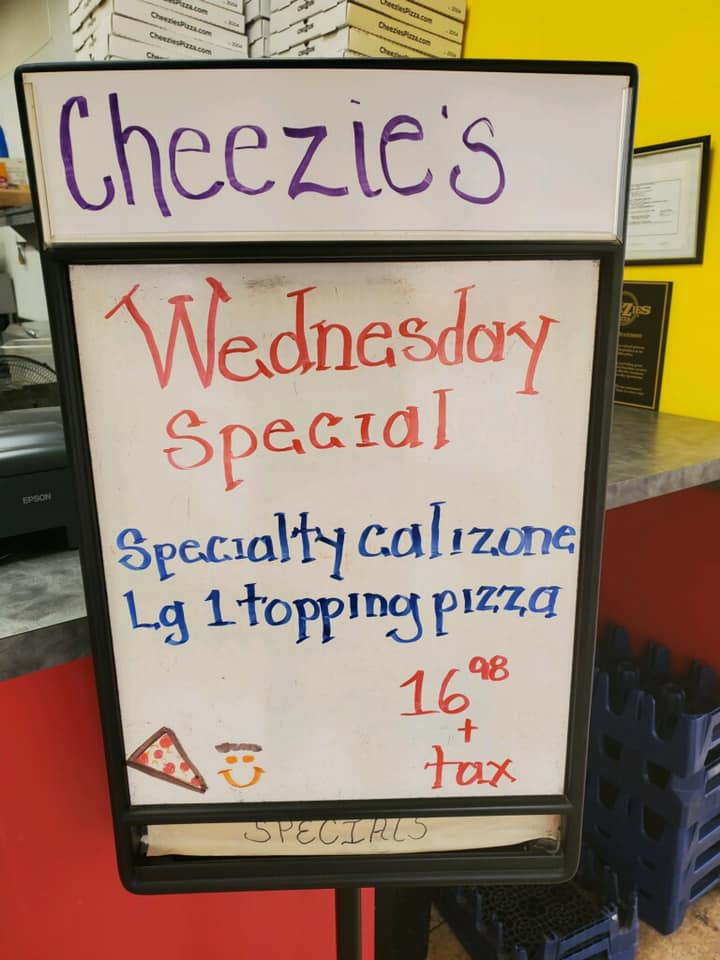 CheeziesPizza.com
CheeziesPizza.com
CheeziesPizza.com
CheeziesPizza.com
CheeziesPizza.com
CheeziesPizza.com
Cheezie's
Wednesday
Special
Specialty calizone
Lg 1 topping pizza
16 98
+
tax
SPECIALS
EPSON